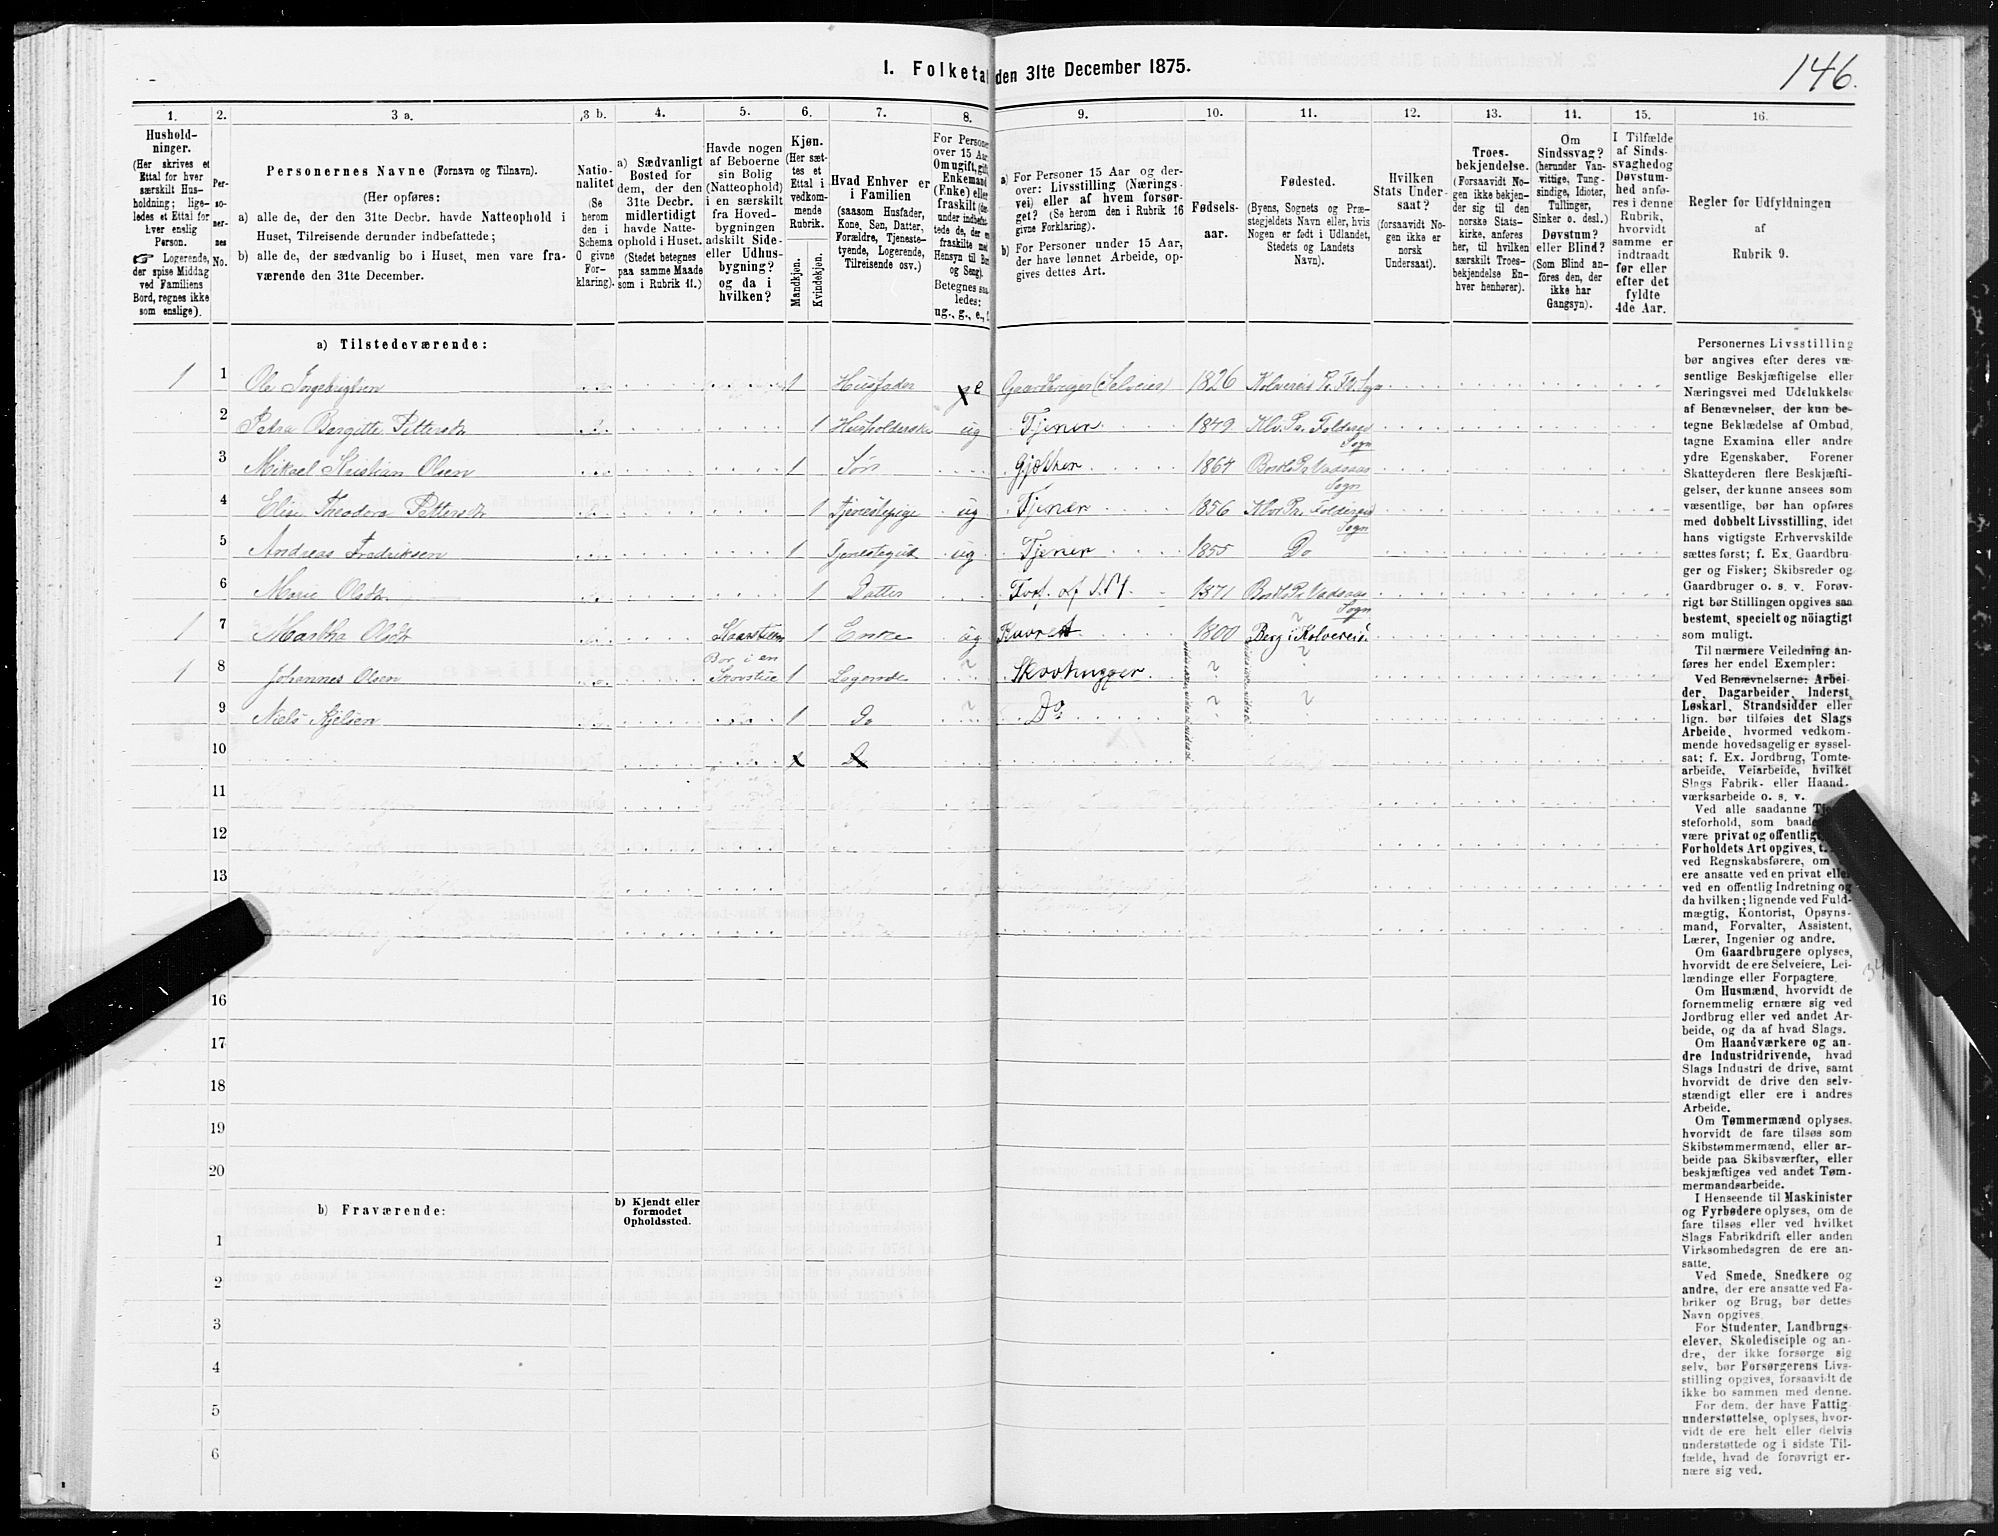 I. Folketal den 31te December 1875.
146.
1.
Hushold-
ninger.
(Her skrives et
Ettal for hver
særskilt Hus-
holdning; lige-
ledes et Ettal for
hver enslig
Person.
☞ Logerende,
der spise Middag
ved Familiens
Bord, regnes ikke
som enslige).
2.
Per-
so-
ner-
nes
No.
3 a.
Personernes Navne (Fornavn og Tilnavn).
(Her opføres:
a) alle de, der den 31te Decbr. havde Natteophold i
Huset, Tilreisende derunder indbefattede;
b) alle de, der sædvanlig bo i Huset, men vare fra-
værende den 31te December.
3 b.
Natio-
nalitet
(Se
herom
den i
Schema
O givne
For-
klaring).
4.
a) Sædvanligt
Bosted for
dem, der den
31te Decbr.
midlertidigt
havde Natte-
ophold i Huset.
(Stedet betegnes
paa samme Maade
som i Rubrik 11.)
5.
Havde nogen
af Beboerne
sin Bolig
(Natteophold)
i en særskilt
fra Hoved-
bygningen
adskilt Side-
eller Udhus-
bygning?
og da i
hvilken?
6.
Kjøn.
(Her sæt-
tes et
Ettal i
vedkom-
mende
Rubrik.
Mandkjøn.
Kvindekjøn.
7.
Hvad Enhver er
i Familien
(saasom Husfader,
Kone, Søn, Datter,
Forældre, Tjeneste-
tyende, Logerende,
Tilreisende osv.)
8.
For Personer
over 15 Aar:
Om ugift, gift,
Enkemand
(Enke) eller
fraskilt
under indbefat-
tede de, der er
fraskilte med
Hensyn til Bord
og Seng).
Betegnes saa-
ledes:
ug., g., e., f.
9.
a) For Personer 15 Aar og der-
over: Livsstilling (Nærings-
vei) eller af hvem forsør-
get? (Se herom den i Rubrik 16
givne Forklaring).
b) For Personer under 15 Aar,
der have lønnet Arbeide, op-
gives dettes Art.
10.
Fødsels-
aar.
11.
Fødested.
(Byens, Sognets og Præ-
stegjeldets Navn eller, hvis
Nogen er født i Udlandet,
Stedets og Landets
Navn).
12.
Hvilken
Stats Under-
saat?
(forsaavidt No-
gen ikke er
norsk
Undersaat).
13.
Troes-
bekjendelse.
(Forsaavidt No-
gen ikke bekjen-
der sig til den
norske Stats-
kirke, anføres
her, til hvilken
særskilt Troes-
bekjendelse En-
hver henhører).
14.
Om
Sindssvag?
(herunder Van-
vittige, Tung-
sindige, Idioter,
Tullinger,
Sinker o. desl.)
Døvstum?
eller Blind?
(Som Blind an-
føres den, der
ikke har
Gangsyn).
15.
I Tilfælde
af Sinds-
svaghed og
Døvstum-
hed anfø-
res i denne
Rubrik,
hvorvidt
samme er
indtraadt
før eller
efter det
fyldte
4de Aar.
16.
Regler for Udfyldningen
af
Rubrik 9.
a) Tilstedeværende:
1 1 Ole Ingebrigtsen 1 Husfader e Gaardbruger (Selveier) 1826 Kolvereid Pr. Fld. Sogn
2 Petra Bergitte Pettersdr 1 Husholderske ug Tjener 1849 Klv. Pr. Foldereid Sogn
3 Mikael Kristian Olsen 1 Søn Gjæther 1864 Sogn
4 Elise Theodora Pettersdr 1 Tjenestepige ug Tjener 1856 Klv. Pr. Foldereid Sogn
5 Andreas Fredriksen 1 Tjenestegut ug Tjener 1855 Do
6 Marie Olsdtr 1 Datter 1871 Sogn
1 7 Martha Olsdtr 1 Enke ug 1800 Berg i Kolvereid ?
1 8 Johannes Olsen Bor i en 1 Logerende ? Skovhugger ? ?
9 Niels 1 Do ? Do ? ?
10
11
12
13
16
17
18
19
20
b) Fraværende:
b) Kjendt eller
formodet
Opholdssted.
1
2
3
4
5
6
Personernes Livsstilling
bør angives efter deres væ-
sentlige Beskjæftigelse eller
Næringsvei med Udelukkelse
af Benævnelser, der kun be-
tegne Beklædelse af Ombud,
tagne Examina eller andre
ydre Egenskaber. Forener
Skatteyderen flere Beskjæfti-
gelser, der kunne ansees som
væsentlige, bør han opføres
med dobbelt Livsstilling, idet
hans vigtigste Erhvervskilde
sættes først; f. Ex. Gaardbru-
ger og Fisker; Skibsreder og
Gaardbruger o. s. v. Forøv-
rigt bør Stillingen opgives saa
bestemt, specielt og nøiagtigt
som muligt.
Til nærmere Veiledning an-
føres her endel Exempler:
Ved Benævnelserne: Arbei-
der, Dagarbeider, Inderst,
Løskarl, Strandsidder eller
lign. bør tilføies det Slags
Arbeide, hvormed vedkom-
mende hovedsagelig er syssel-
sat; f. Ex. Jordbrug, Tomte-
arbeide, Veiarbeide, hvilket
Slags Fabrik- eller Haand-
værksarbeide o. s. v.
Ved alle saadanne
steforhold, som
være privat og offentligt,
Forholdets Art opgives,
ved Regnskabsførere, om
ere ansatte ved en privat eller
ved en offentlig Indretning og
da hvilken; lignende ved Fuld-
mægtig, Kontorist, Opsyns-
mand, Forvalter, Assistent,
Lærer, Ingeniør og andre.
Om Gaardbrugere oplyses,
hvorvidt de ere Selveiere, Lei-
lændinge eller Forpagtere.
Om Husmænd, hvorvidt de
fornemmelig ernære sig ved
Jordbrug eller ved andet Ar-
beide, og da af hvad Slags.
Om Haandværkere og an-
dre Industridrivende, hvad
Slags Industri de drive, samt
hvorvidt de drive den selv-
stændigt eller ere i andres
Arbeide.
Om Tømmermænd oplyses,
hvorvidt de fare tilsøs som
Skibstømmermænd, eller ar-
beide paa Skibsværfter, eller
beskjæftiges ved andet Tøm-
mermandsarbeide.
I Henseende til Maskinister
og Fyrbødere oplyses, om de
fare tilsøs eller ved hvilket
Slags Fabrikdrift eller anden
Virksomhedsgren de ere an-
satte.
Ved Smede, Snedkere og
andre, der ere ansatte ved Fa-
briker og Brug, bør dettes
Navn opgives.
For Studenter, Landbrugs-
elever, Skoledisciple og an-
dre, der ikke forsørge sig
selv, bør Forsørgerens Livs-
stilling opgives, forsaavidt de
ikke bo sammen med denne.
For dem, der have Fattig-
understøttelse, oplyses, hvor-
vidt de ere helt eller delvis
understøttede og i sidste Til-
fælde, hvad de forøvrigt er-
nære sig ved.